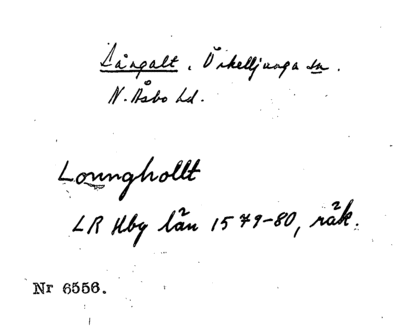 Långalt. Örkelljunga sn.
N. Åsbo hd.
Lounghollt
LR Hby län 1579-80, räk.
Nr 6556.